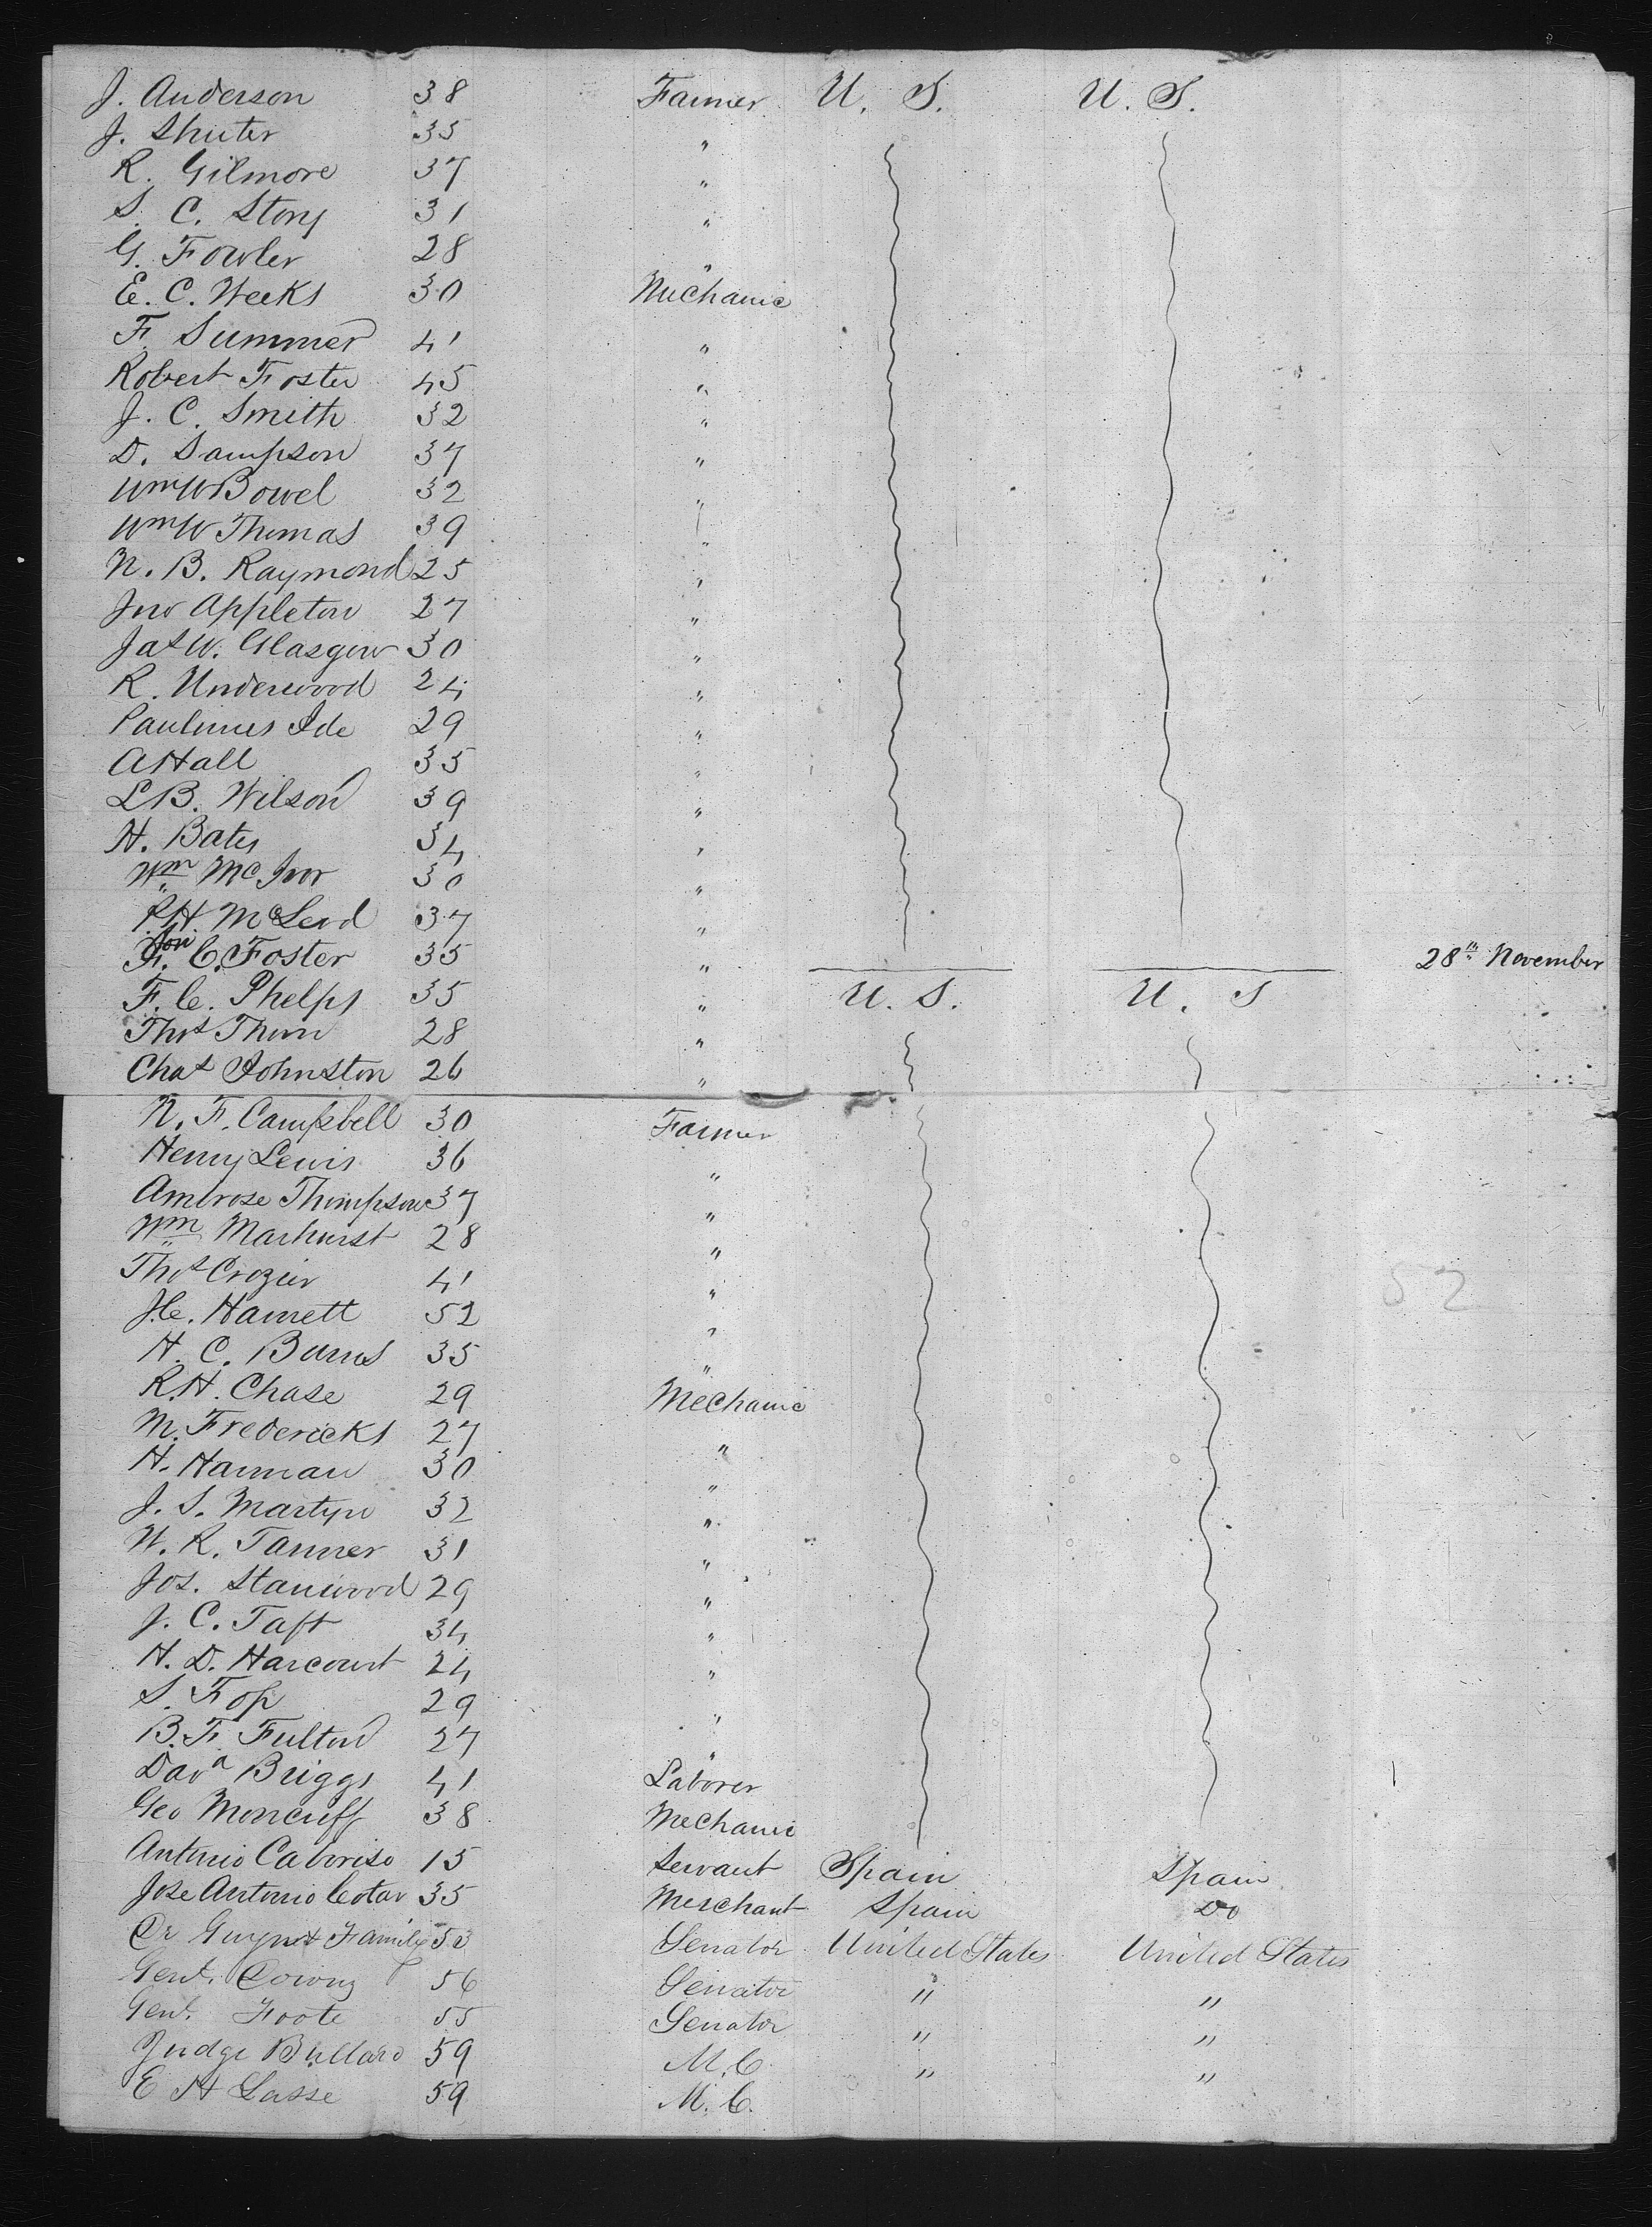 J. Anderson 38 Farmer U. S. U. S.
J. Shuter 35 "
R. Gilmore 37 "
S. C. Story 31 "
G. Fowler 28 "
E. C. Weeks 30 Mechanic
F. Summer 41 "
Robert Foster 45 "
J. C. Smith 32 "
D. Sampson 37 "
Wm W Bowel 32 "
Wm W Thomas 39 "
N. B. Raymond 25 "
Jno Appleton 27 "
Jas W. Glasgow 30 "
R. Underwood 24 "
Paulinus Ide 29 "
A Hall 35 "
L B. Wilson 39 "
H. Bates 34 "
Wm McIvor 30 "
R. H. McLeod 37 "
Hon F. C. Foster 35 " 28th November
F. C. Phelps 35 " U. S. U. S
Thos Thom 28 "
Chas Johnston 26 "
N. F. Campbell 30 Farmer
Henry Lewis 36 "
Ambrose Thompson 37 "
Wm Marhurst 28 "
Thos Crozier 41 "
52
J. C. Hamett 52 "
H. C. Burns 35 "
R. H. Chase 29 Mechanic
M. Fredericks 27 "
H. Harman 30 "
J. S. Martyn 32 "
W. R. Tanner 31 "
Jos. Stanwood 29 "
J. C. Taft 34 "
H. D. Harcourt 24 "
S. Fop 29 "
B. F. Fulton 27 "
Dav Briggs 41 Laborer
Geo Moncuff 38 Mechanic
Antonio Caboriso 15 Servant Spain Spain
Jose Antonio Cotar 35 Merchant Spain Do
Dr Gwyn & Family 53 Senator United States United States
Genl. Downy 56 Senator " "
Genl. Foote 55 Senator " "
Judge Bullard 59 M. C. " "
E H Lasse 59 M. C.